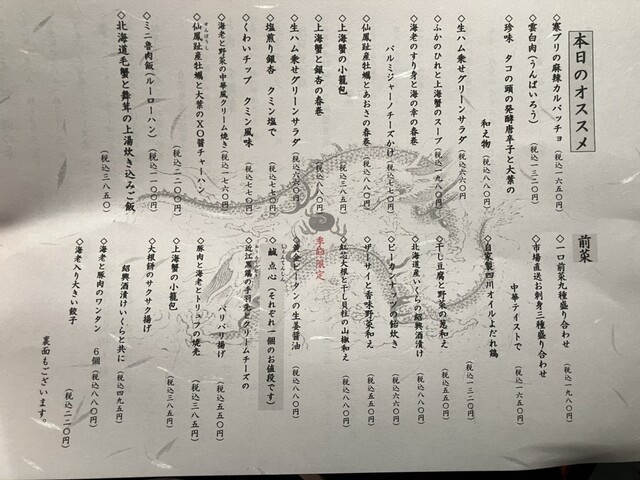 本日のオススメ
◇寒ブリの麻辣カルパッチョ（税込一六五〇円）
◇雲白肉（うんぱいろう）（税込一三二〇円）
◇珍味 タコの頭の発酵唐辛子と大葉の
和え物（税込八八〇円）
◇生ハム乗せグリーンサラダ（税込六六〇円）
◇ふかのひれと上海蟹のスープ（税込一九八〇円）
◇海老のすり身と海の幸の春巻
パルミジャーノチーズがけ（税込七七〇円）
◇仙鳳趾産牡蠣とあおさの春巻（税込八八〇円）
◇上海蟹の小籠包（税込三八五円）
◇上海蟹と銀杏の春巻（税込八八〇円）
◇生ハム乗せグリーンサラダ（税込六六〇円）
◇塩煎り銀杏 クミン塩で（税込七七〇円）
◇くわいチップ クミン風味（税込七七〇円）
◇海老と野菜の中華風クリーム焼き（税込一七六〇円）
◇仙鳳趾産牡蠣と大葉のXO醤チャーハン
（税込二二〇〇円）
◇ミニ魯肉飯（ルーローハン）（税込一一〇〇円）
◇北海道毛蟹と舞茸の上湯炊き込みご飯
（税込三八五〇円）
前菜
◇一口前菜九種盛り合わせ（税込一九八〇円）
◇市場直送お刺身三種盛り合わせ
中華テイストで（税込一六五〇円）
◇自家製四川オイルよだれ鶏
（税込一三二〇円）
◇干し豆腐と野菜の葱和え（税込五五〇円）
◇北海道産いくらの紹興酒漬け（税込八八〇円）
◇ピーカンナッツの飴炊き（税込六六〇円）
◇ザーサイと香味野菜和え（税込五五〇円）
◇紅芯大根と干し貝柱の山椒和え（税込八八〇円）
季節限定
◇黄金ピータンの生姜醤油（税込八八〇円）
◇鹹点心（それぞれ一個のお値段です）
◇近江黒鶏の手羽先とクリームチーズの
パリパリ揚げ（税込五五〇円）
◇豚肉と海老とトリュフの焼売（税込三八五円）
◇上海蟹の小籠包（税込三八五円）
◇大根餅のサクサク揚げ
紹興酒漬けいくらと共に（税込四九五円）
◇海老と豚肉のワンタン ６個（税込八八〇円）
◇海老入り大きい餃子（税込二二〇円）
裏面もございます。